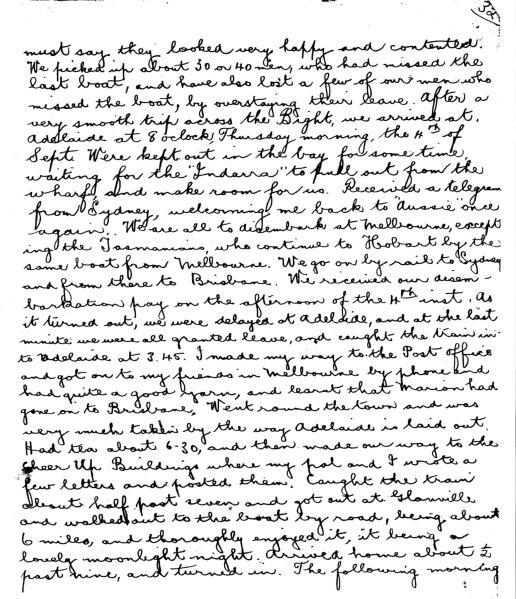 32
must say they looked very happy and contented.
We picked up about 30 or 40 men, who had missed the
last boat, and have also lost a few of our men who
missed the boat, by overstaying their leave. After a
very smooth trip across the Bight, we arrived at
Adelaide at 8 oclock, Thursday morning, the 4th of
Sept. Were kept out in the bay for some time
waiting for the "Indarra" to pull out from the
wharf, and make room for us. Received a telegram
from Sydney, welcoming me back to "Aussie" once
again. We are all to disembark at Melbourne, except
ing the Tasmanians, who continue to Hobart by the
same boat from Melbourne. We go on by rail to Sydney
and from there to Brisbane. We received our disem-
barkation pay on the afternoon of the 4th inst. As
it turned out, we were delayed at Adelaide, and at the last
minute we were all granted leave, and caught the train in-
to Adelaide at 3.45. I made my way to the Post Office
and got on to my friends in Melbourne by phone and
had quite a good yarn, and learnt that Marion had
gone on to Brisbane. Went round the town and was
very much taken by the way Adelaide is laid out.
Had tea about 6-30, and then made our way to the
Cheer Up Buildings where my pal and I wrote a
few letters and posted them. Caught the train
about half past seven and got out at Glanville
and walked out to the boat by road, being about
6 miles, and thoroughly enjoyed it, it being a
lovely moonlight night. Arrived home about ½
past nine, and turned in. The following morning